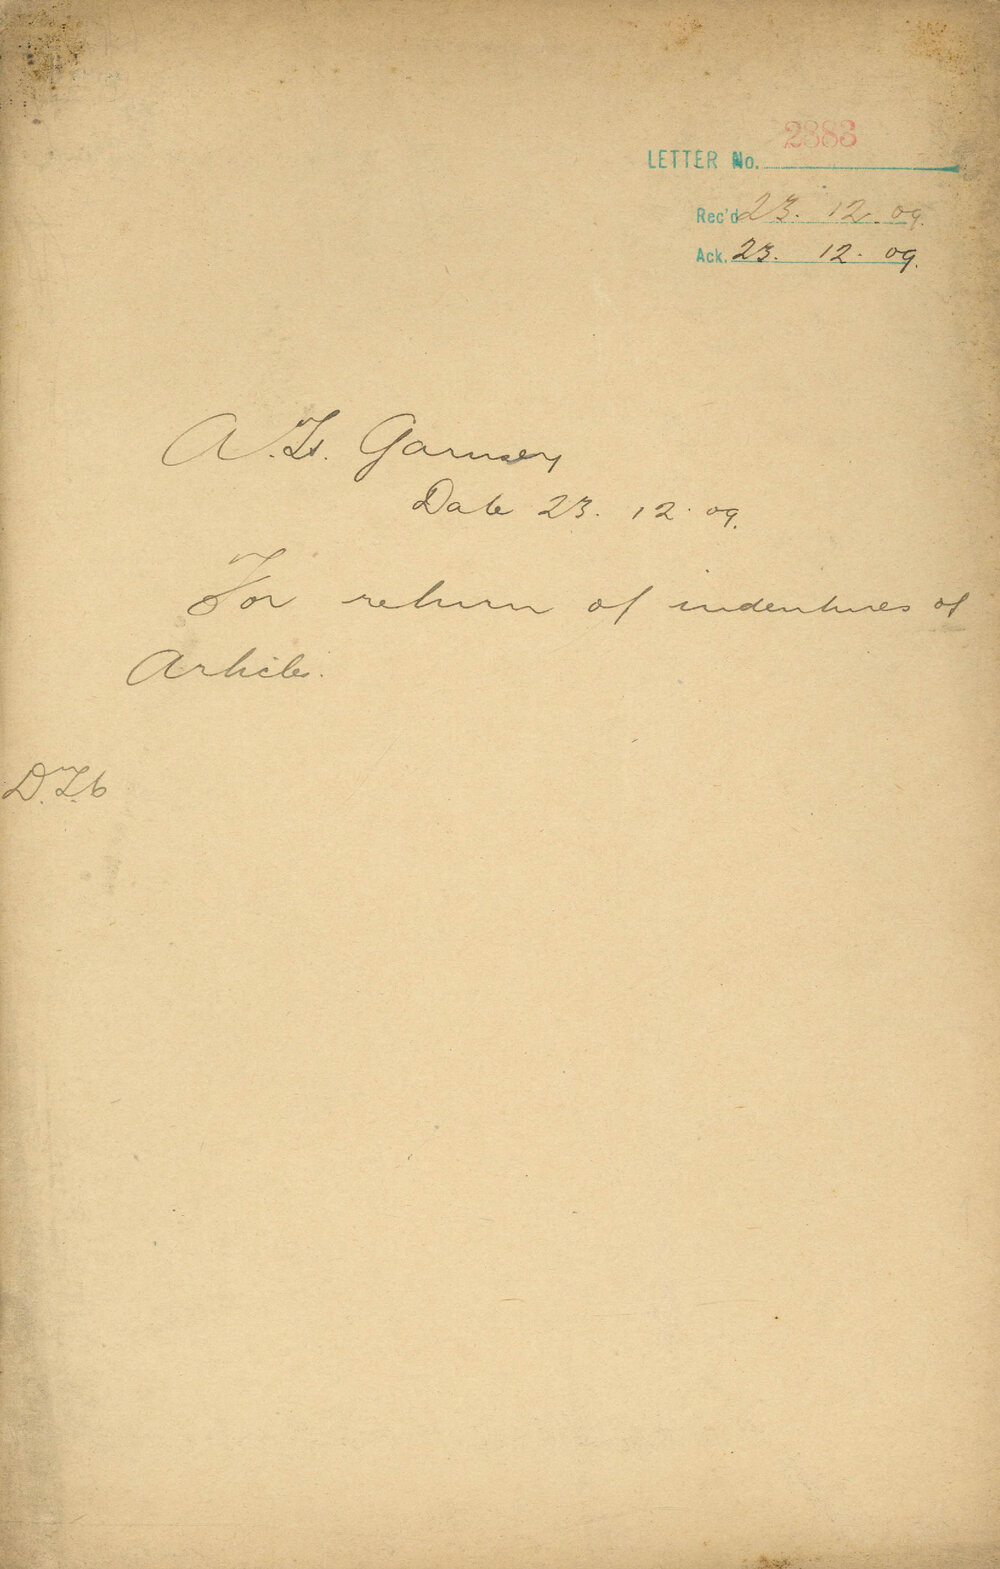 LETTER No. 2383
Rec'd 23. 12. 09.
Ack. 23. 12. 09.
Garnsey
Date 23. 12. 09.
For return of indentures of
Articles.